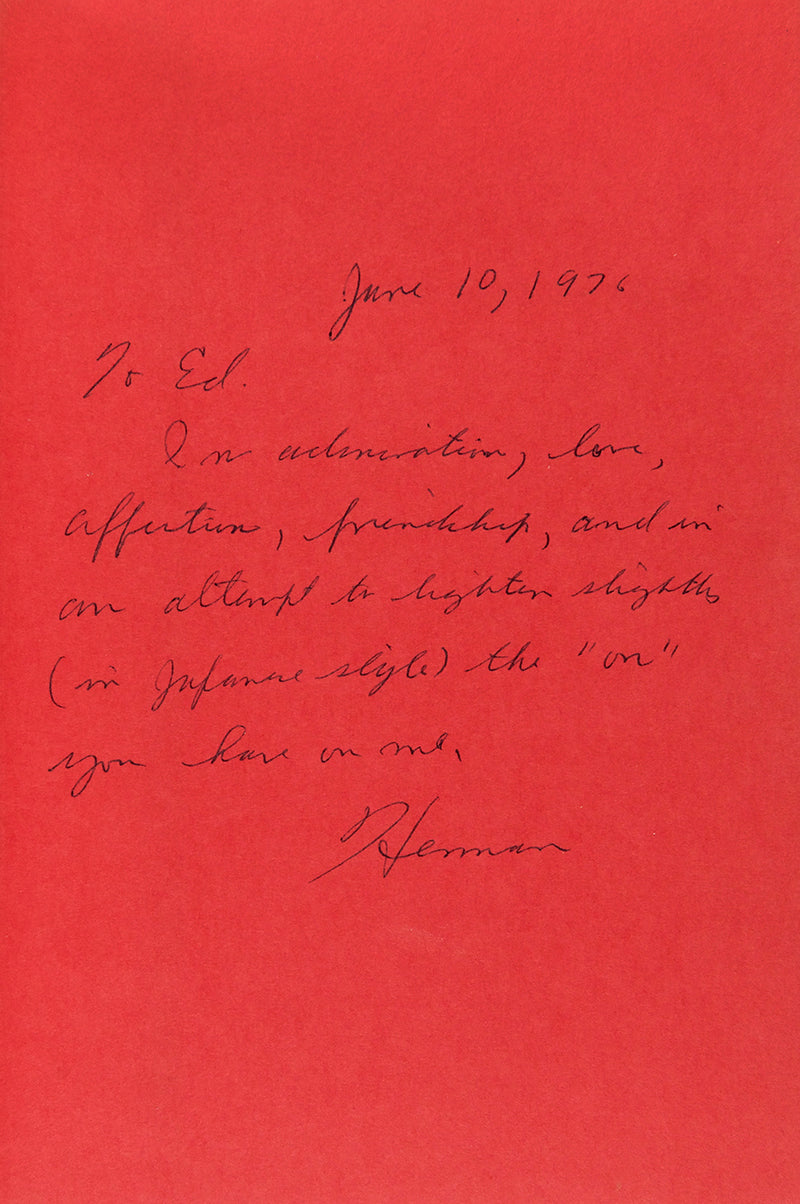 June 10, 1976
To Ed.
In admiration, love,
affection, friendship, and in
an attempt to lighten slightly
(in Japanese style) the "on"
you have on me.
Herman